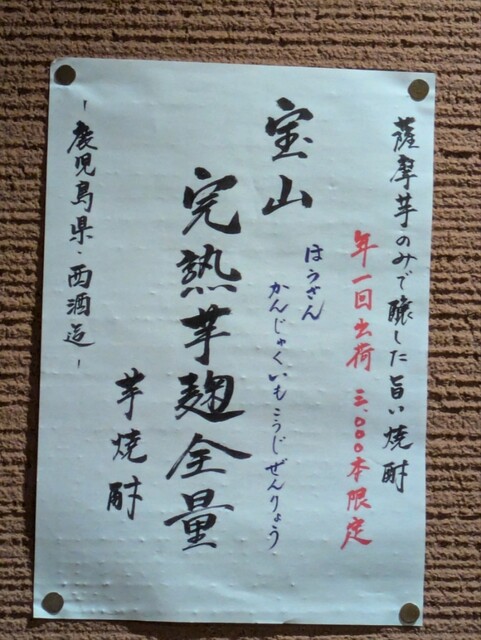 薩摩芋のみで醸した旨い焼酎
年一回出荷 三、〇〇〇本限定
宝山
ほうざん
完熟芋麹全量
かんじゃくいもこうじぜんりょう
芋焼酎
-鹿児島県・西酒造-